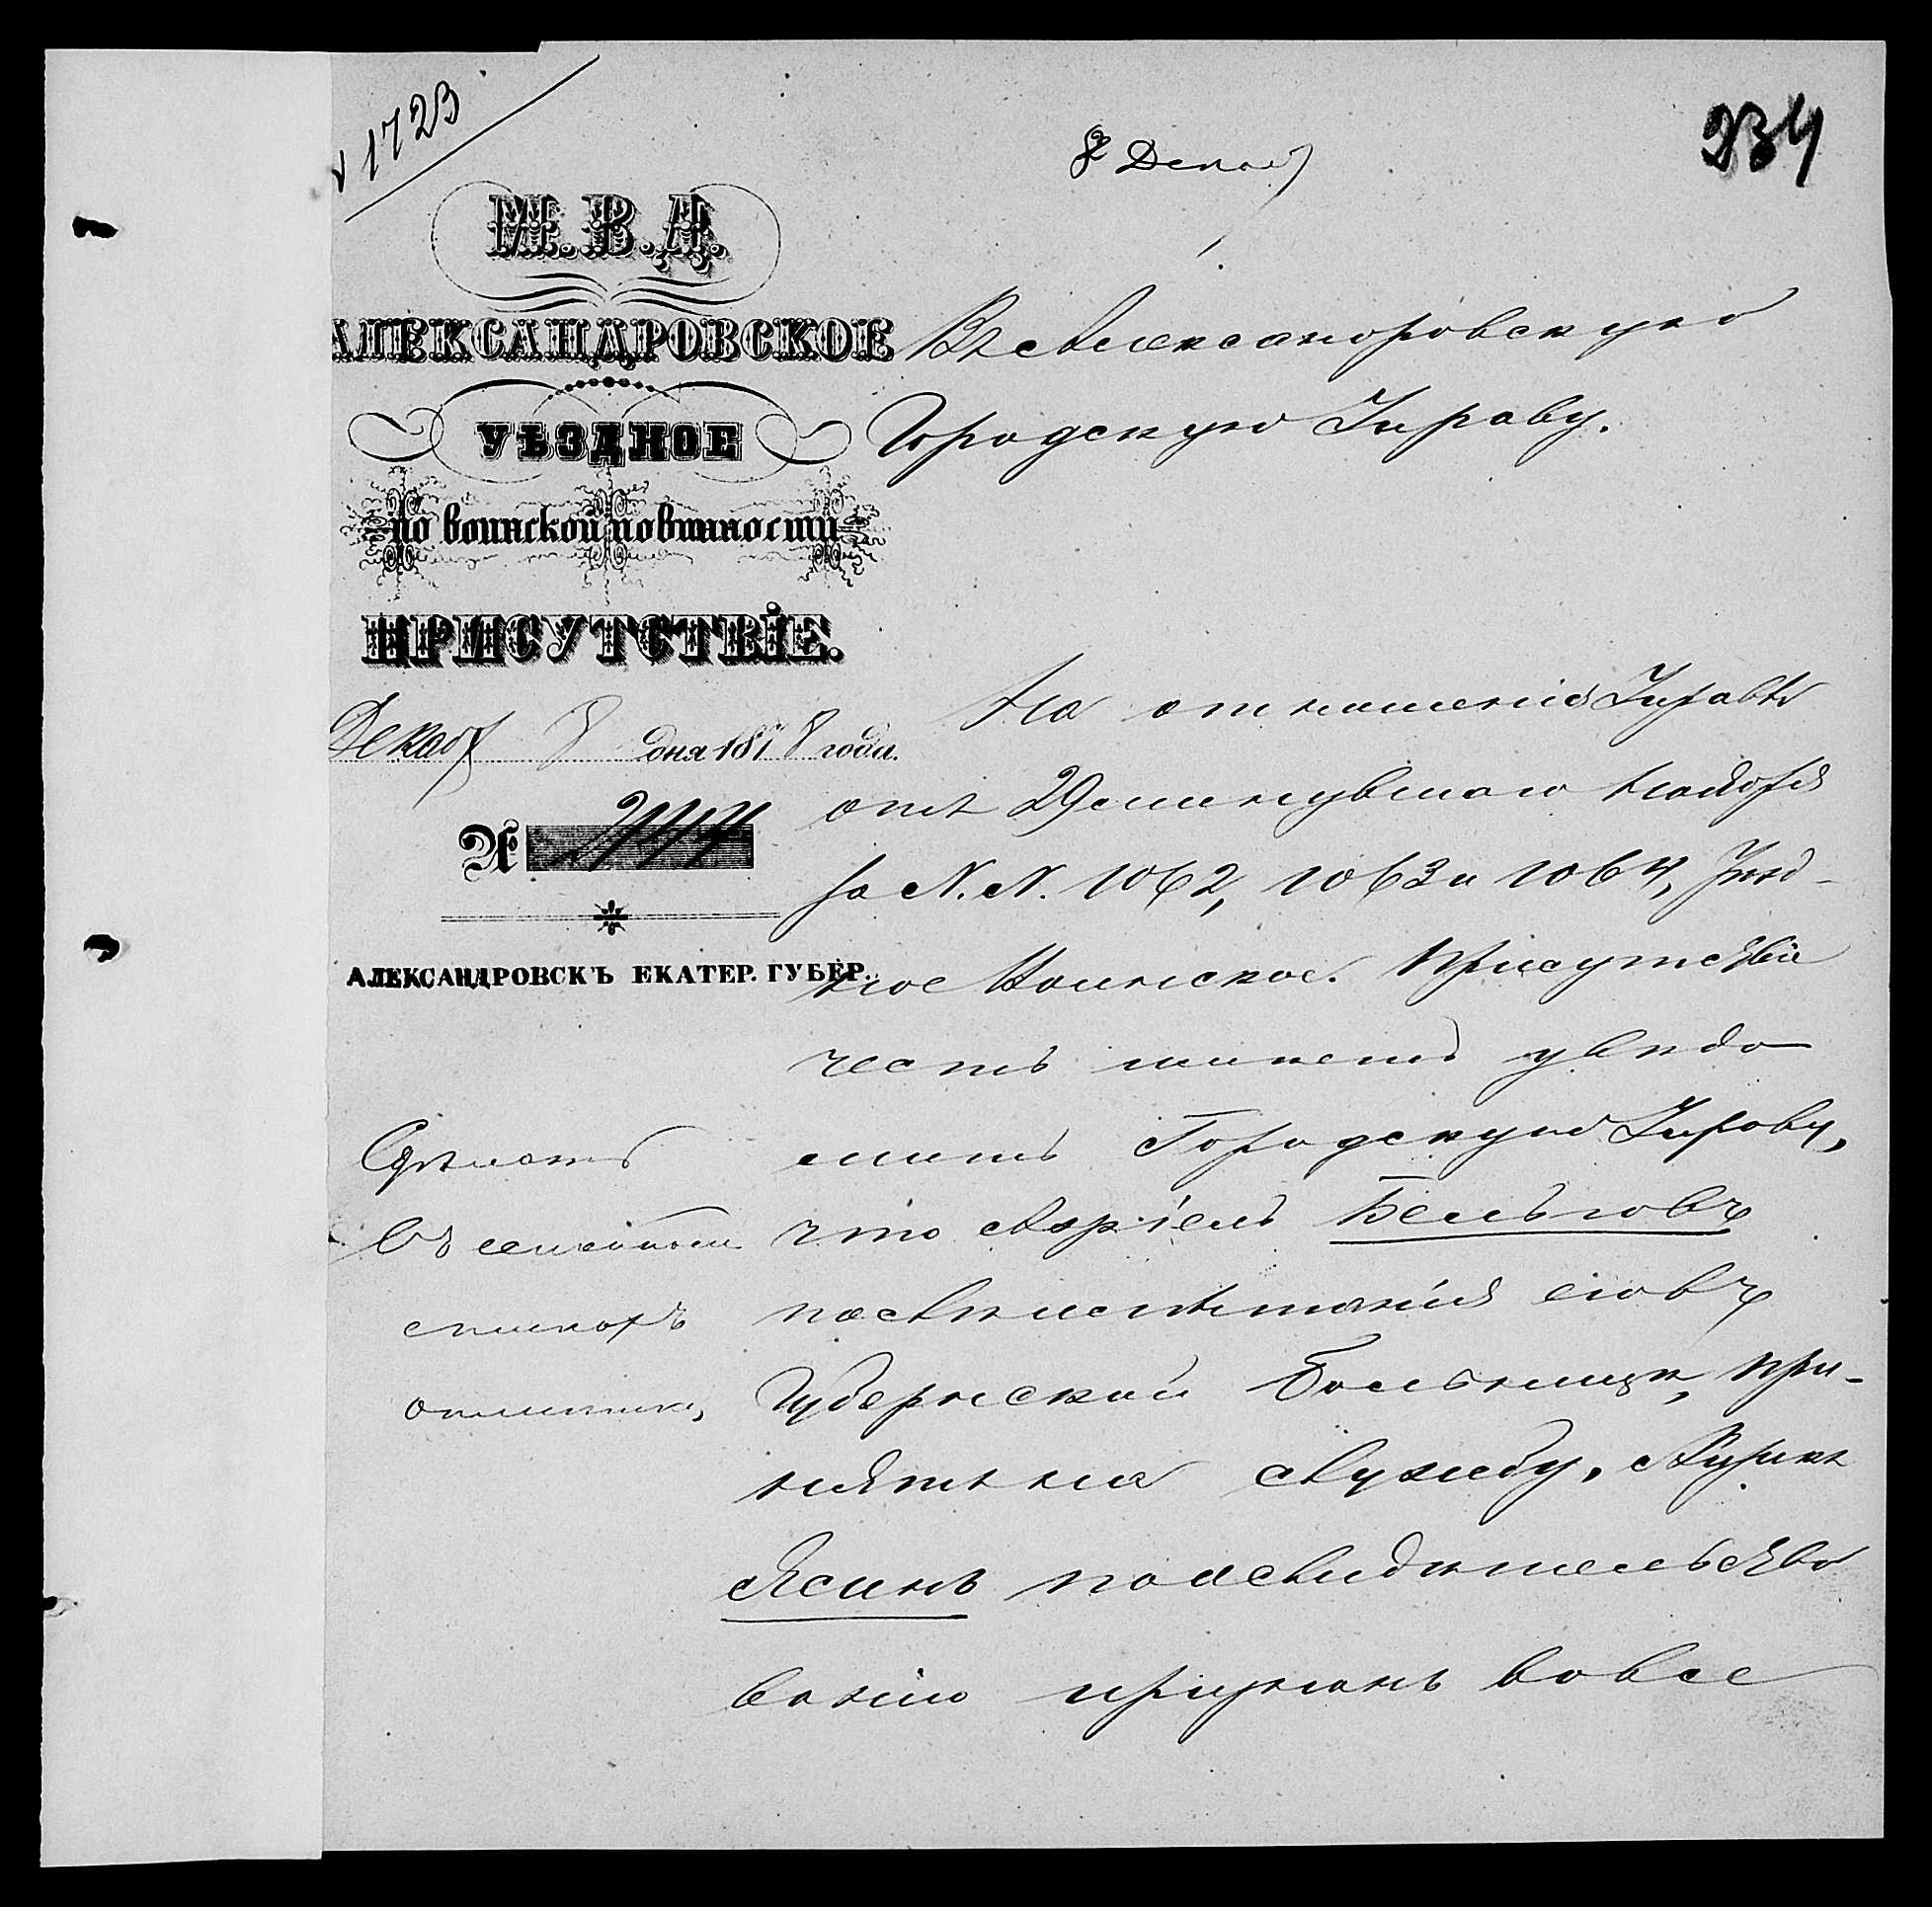 1723
8 Декаб
234
М.В.Д.
АЛЕКСАНДРОВСКОЕ
УѢЗДНОЕ
по воинской повинности
ПРИСУТСТВІЕ.
Декаб 8 дня 1878 года.
№ 2444
АЛЕКСАНДРОВСКЪ ЕКАТЕР. ГУБЕР.
Въ Александровскую
Городскую Управу.
На отношенія Управы
отъ 29 минувшаго Ноября
за N.N. 1062, 1063 и 1064, Уѣзд-
ное Воинское Присутствіе
честь имѣетъ увѣдо
мить Городскую Управу,
что Азріель
по свидѣтельствованія его въ
Губернской Больницѣ, при-
нятъ на службу,
Ясинъ по освидѣтельство
ванію признанъ вовсе
Сдѣлать
въ семейномъ
спискахъ
отмѣтки,